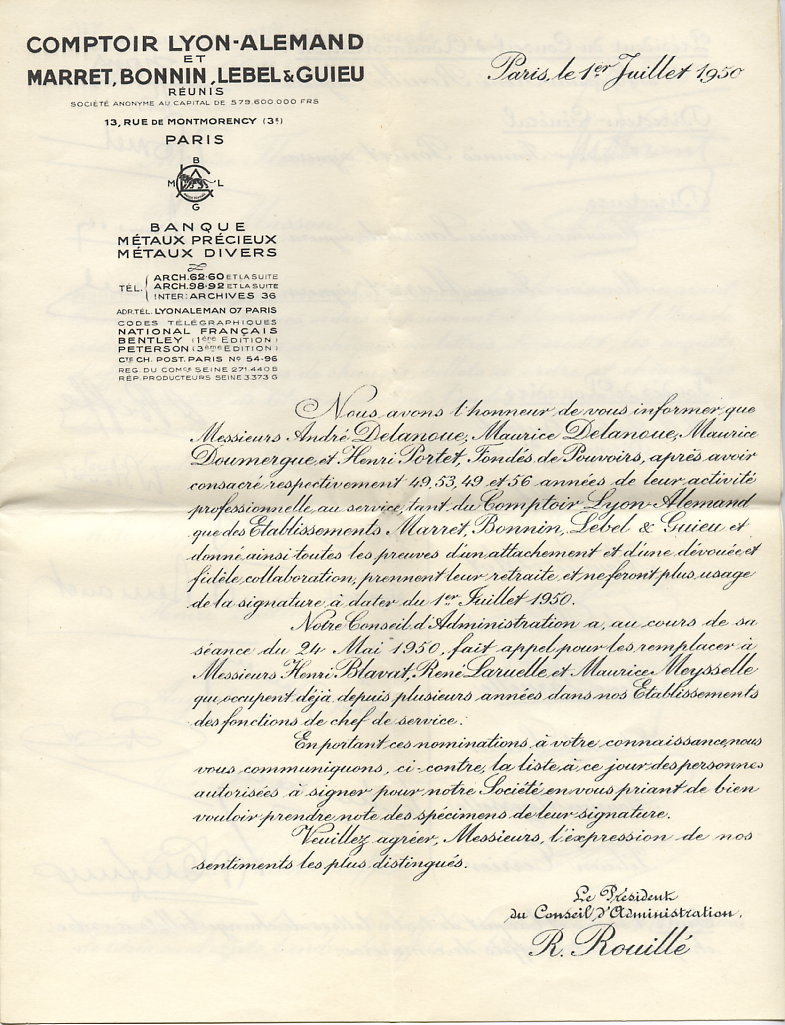 COMPTOIR LYON-ALEMAND
ET
MARRET, BONNIN, LEBEL & GUIEU
RÉUNIS
SOCIÉTÉ ANONYME AU CAPITAL DE 579.600.000 FRS
13, RUE DE MONTMORENCY (3e)
PARIS
B
M L
G
BANQUE
MÉTAUX PRÉCIEUX
MÉTAUX DIVERS
TÉL. ARCH. 62-60 ET LA SUITE
ARCH. 98-92 ET LA SUITE
INTER: ARCHIVES 36
ADR. TÉL. LYONALEMAN 07 PARIS
CODES TÉLÉGRAPHIQUES
NATIONAL FRANÇAIS
BENTLEY (1ère EDITION)
PETERSON (3ème EDITION)
Cte CH. POST. PARIS No 54-96
REG. DU COMce SEINE 271.440 B
RÉP. PRODUCTEURS SEINE 3373 G
Paris, le 1er Juillet 1950
Nous avons l'honneur de vous informer que
Messieurs André Delanoue, Maurice Delanoue, Maurice
Doumergue, et Henri Portet, Fondés de Pouvoirs, après avoir
consacré respectivement 49, 53, 49 et 56 années de leur activité
professionnelle au service, tant du Comptoir Lyon-Alemand
que des Etablissements Marret, Bonnin, Lebel & Guieu et
donné ainsi toutes les preuves d'un attachement et d'une dévouée et
fidèle collaboration, prennent leur retraite et ne feront plus usage
de la signature à dater du 1er Juillet 1950.
Notre Conseil d'Administration a, au cours de sa
séance du 24 Mai 1950, fait appel pour les remplacer à
Messieurs Henri Blavat, René Laruelle et Maurice Meysselle
qui occupent déjà depuis plusieurs années dans nos Etablissements
des fonctions de chef de service.
En portant ces nominations à votre connaissance, nous
vous communiquons, ci-contre, la liste à ce jour des personnes
autorisées à signer pour notre Société en vous priant de bien
vouloir prendre note des spécimens de leur signature.
Veuillez agréer, Messieurs, l'expression de nos
sentiments les plus distingués.
Le Président
du Conseil d'Administration,
R. Rouillé